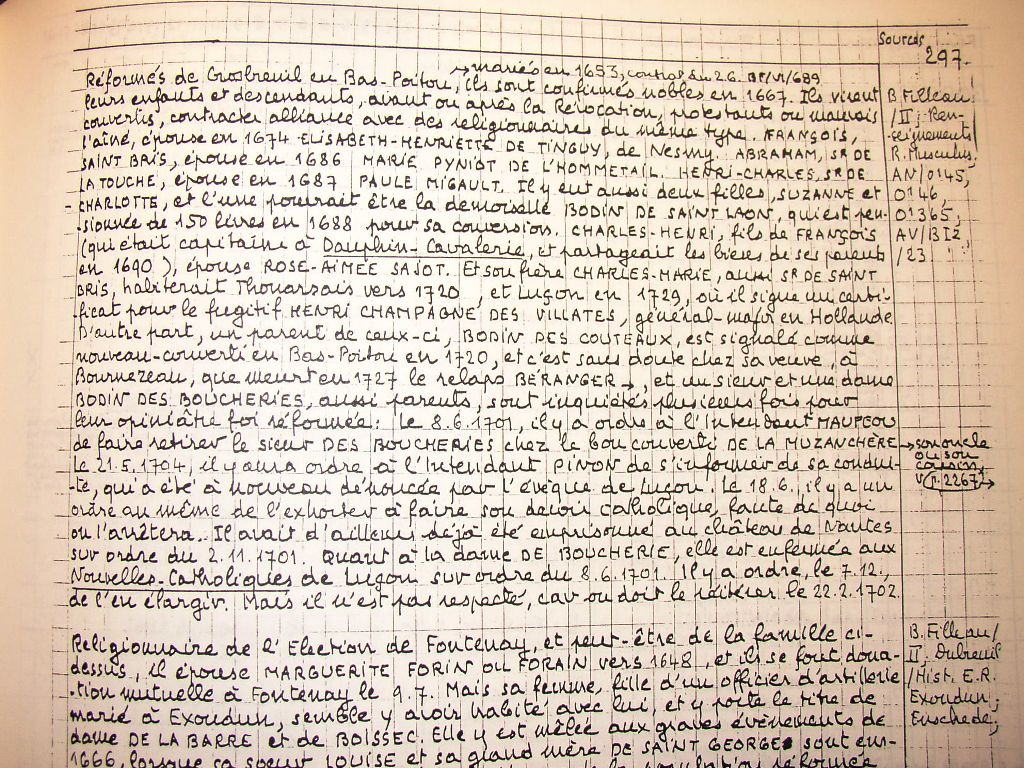 Sources
297.
→ mariés en 1653, contrat du 26. BP/VI/689
Réformés de Grosbreuil en Bas-Poitou, ils sont confirmés nobles en 1667. Ils virent
leurs enfants et descendants, avant ou après la Révocation, protestants ou mauvais
convertis, contracter alliance avec des religionnaires du même type. FRANÇOIS,
l'aîné, épouse en 1674 ELISABETH-HENRIETTE DE TINGUY, de Nesmy. ABRAHAM, Sr DE
SAINT BRIS, épouse en 1686 MARIE PYNIOT DE L'HOMMETAIL. HENRI-CHARLES, Sr DE
LA TOUCHE, épouse en 1687 PAULE MIGAULT. Il y eut aussi deux filles, SUZANNE et
CHARLOTTE, et l'une pourrait être la demoiselle BODIN DE SAINT LAON, qui est pen-
-sionnée de 150 livres en 1688 pour sa conversion. CHARLES-HENRI, fils de FRANÇOIS
(qui était capitaine à Dauphin-Cavalerie, et partageait les biens de ses parents
en 1690), épouse ROSE-AIMEE SAJOT. Et son frère CHARLES-MARIE, aussi Sr DE SAINT
BRIS, habiterait Thouarsais vers 1720, et Luçon en 1729, où il signe un certi-
-ficat pour le fugitif HENRI CHAMPAGNE DES VILLATES, général-major en Hollande
D'autre part, un parent de ceux-ci, BODIN DES COUTEAUX, est signalé comme
nouveau-converti en Bas-Poitou en 1720, et c'est sans doute chez sa veuve, à
Bournezeau, que meurt en 1727 le relaps BÉRANGER →, et un sieur et une dame
BODIN DES BOUCHERIES, aussi parents, sont inquiétés plusieurs fois pour
leur opiniâtre foi réformée: le 8.6.1701, il y a ordre à l'Intendant MAUPEOU
de faire retirer le sieur DES BOUCHERIES chez le bon converti DE LA MUZANCHÈRE →
Le 21.5.1704, il y aura ordre à l'Intendant PINON de s'informer de sa condui-
-te, qui a été à nouveau dénoncée par l'évêque de Luçon. Le 18.6. il y a un
ordre au même de l'exhorter à faire son devoir catholique, faute de quoi
on l'arrêtera. Il avait d'ailleurs déjà été emprisonné au château de Nantes
sur ordre du 2.11.1701. Quant à la dame DE BOUCHERIE, elle est enfermée aux
Nouvelles-Catholiques de Luçon sur ordre du 8.6.1701. Il y a ordre, le 7.12.,
de l'en élargir. Mais il n'est pas respecté, car on doit le réitérer le 22.2.1702.
B. Filleau
/II; Ren-
-seignements
R. Musculus,
AN/O¹45,
O¹46,
O¹365,
AV/BIZ
/23
son oncle
ou son
cousin
V(p.2267) →
Religionnaire de l'Election de Fontenay, et peut-être de la famille ci-
dessus, il épouse MARGUERITE FORIN OU FORAIN vers 1648, et ils se font dona-
-tion mutuelle à Fontenay le 9.7. Mais sa femme, fille d'un officier d'artillerie
marié à Exoudun, semble y avoir habité avec lui, et y porte le titre de
dame DE LA BARRE et de BOISSEC. Elle y est mêlée aux graves évènements de
1666, lorsque sa soeur LOUISE et sa grand mère DE SAINT GEORGE sont en-
réformée
B. Filleau/
II; Dubreuil
/Hist. E.R.
Exoudun;
Enschede;